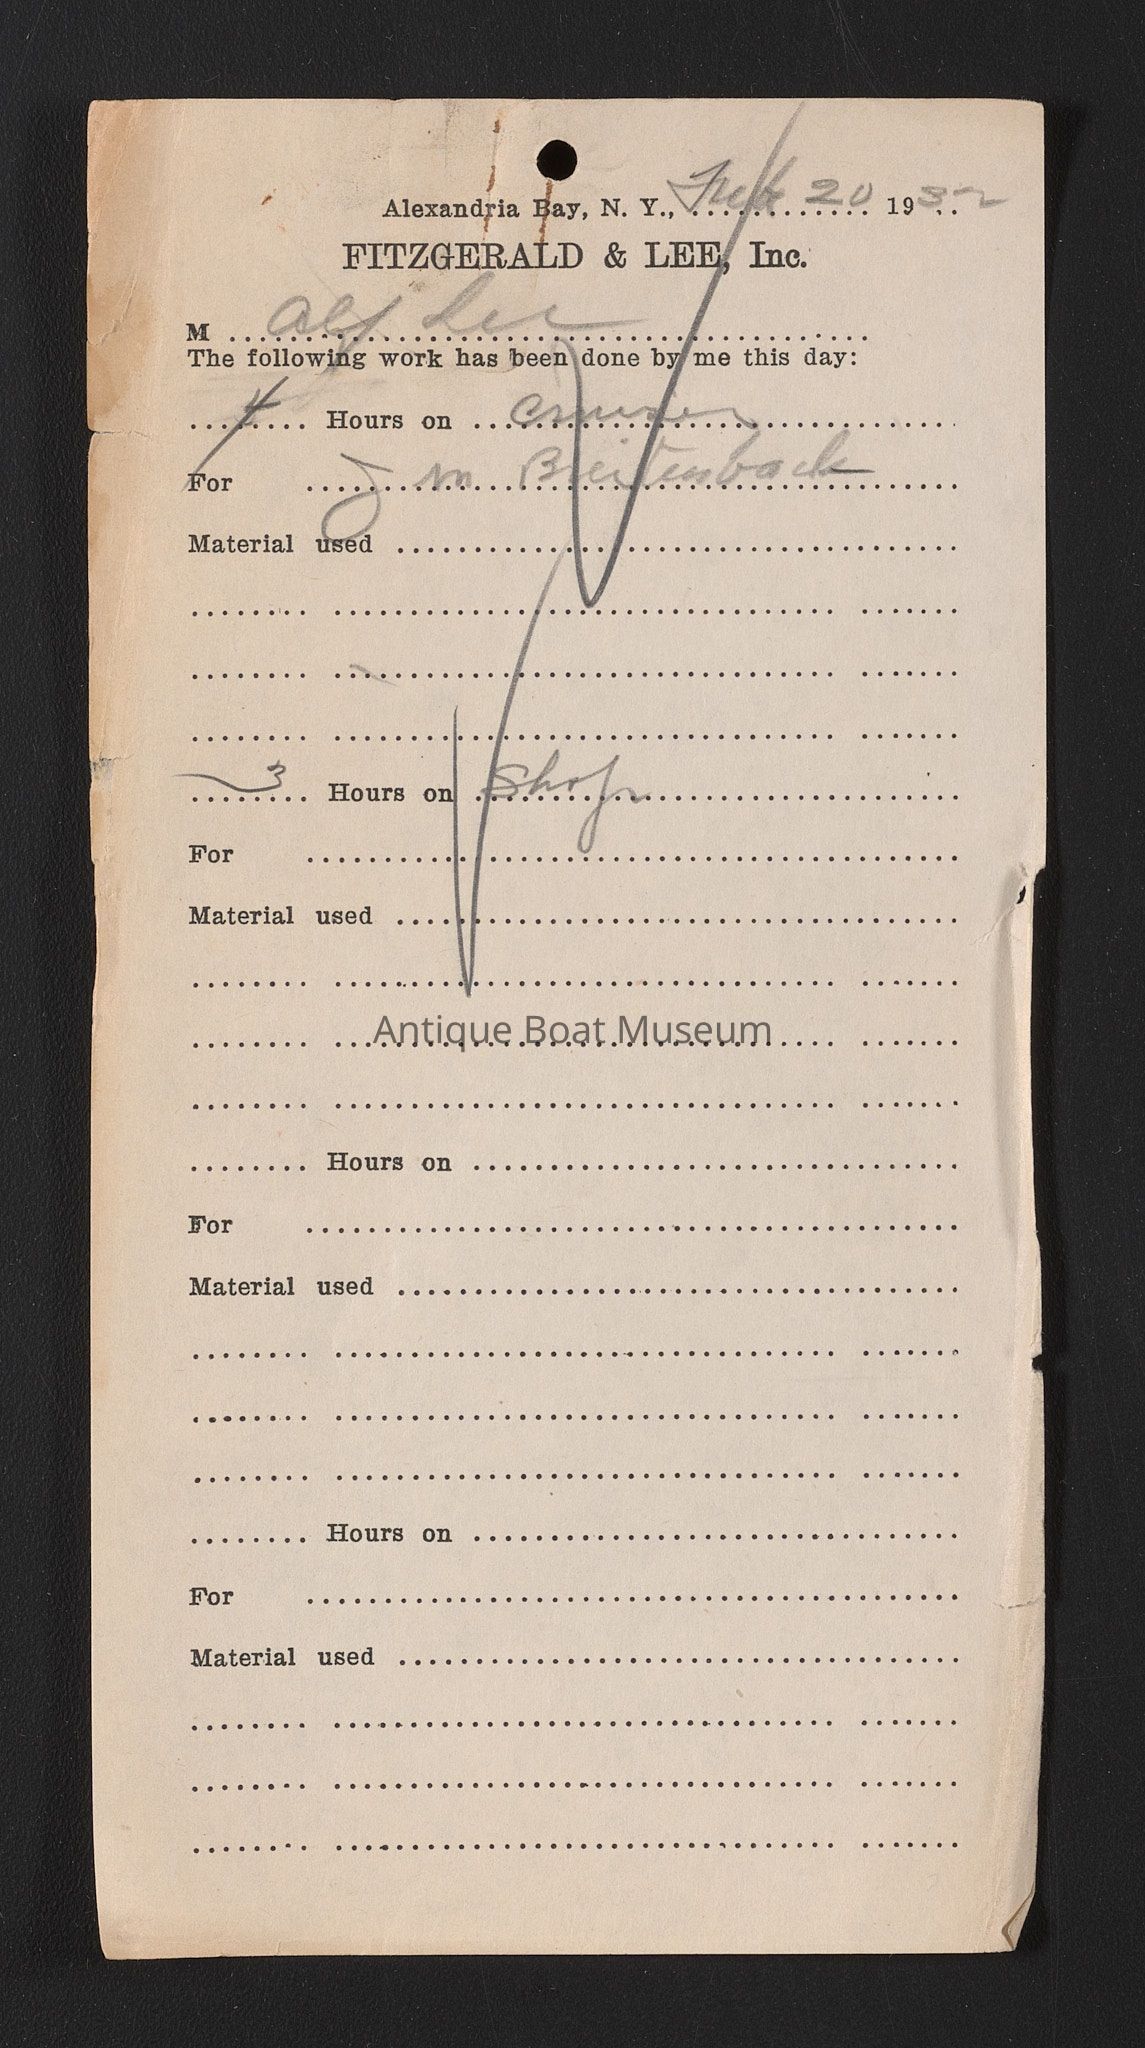 Alexandria Bay, N. Y., Feb 20 1932
FITZGERALD & LEE, Inc.
M Alf Lee
The following work has been done by me this day:
4 Hours on cruiser
For J M Breitenbach
Material used
3 Hours on Shop
For
Material used
Antique Boat Museum
Hours on
For
Material used
Hours on
For
Material used